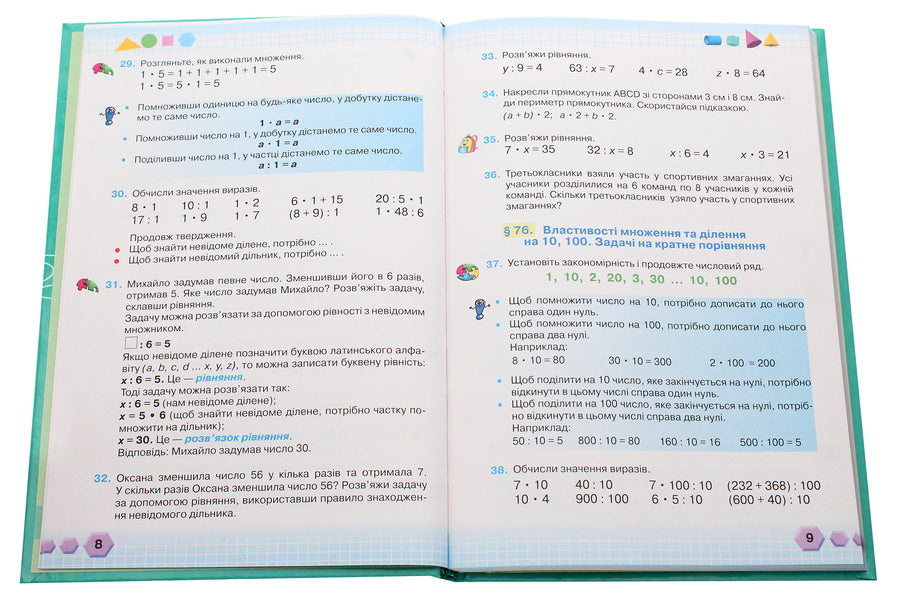 29. Розгляньте, як виконали множення.
1 · 5 = 1 + 1 + 1 + 1 + 1 = 5
1 · 5 = 5 · 1 = 5
• Помноживши одиницю на будь-яке число, у добутку дістане-
мо те саме число.
1 · a = a
• Помноживши число на 1, у добутку дістанемо те саме число.
a · 1 = a
• Поділивши число на 1, у частці дістанемо те саме число.
a : 1 = a
30. Обчисли значення виразів.
8 · 1 10 : 1 1 · 2 6 · 1 + 15 20 : 5 · 1
17 : 1 1 · 9 1 · 7 (8 + 9) : 1 1 · 48 : 6
Продовж твердження.
• Щоб знайти невідоме ділене, потрібно ... .
• Щоб знайти невідомий дільник, потрібно ... .
31. Михайло задумав певне число. Зменшивши його в 6 разів,
отримав 5. Яке число задумав Михайло? Розв’яжіть задачу,
склавши рівняння.
Задачу можна розв’язати за допомогою рівності з невідомим
множником.
□ : 6 = 5
Якщо невідоме ділене позначити буквою латинського алфа-
віту (a, b, c, d ... x, y, z), то можна записати буквену рівність:
x : 6 = 5. Це — рівняння.
Тоді задачу можна розв’язати так:
x : 6 = 5 (нам невідоме ділене);
x = 5 • 6 (щоб знайти невідоме ділене, потрібно частку по-
множити на дільник);
x = 30. Це — розв’язок рівняння.
Відповідь: Михайло задумав число 30.
32. Оксана зменшила число 56 у кілька разів та отримала 7.
У скільки разів Оксана зменшила число 56? Розв’яжи задачу
за допомогою рівняння, використавши правило знаходжен-
ня невідомого дільника.
8
33. Розв’яжи рівняння.
y : 9 = 4 63 : x = 7 4 · c = 28 z · 8 = 64
34. Накресли прямокутник ABCD зі сторонами 3 см і 8 см. Знай-
ди периметр прямокутника. Скористайся підказкою.
(a + b) · 2; a · 2 + b · 2.
35. Розв’яжи рівняння.
7 · x = 35 32 : x = 8 x : 6 = 4 x · 3 = 21
36. Третьокласники взяли участь у спортивних змаганнях. Усі
учасники розділилися на 6 команд по 8 учасників у кожній
команді. Скільки третьокласників узяло участь у спортивних
змаганнях?
§ 76. Властивості множення та ділення
на 10, 100. Задачі на кратне порівняння
37. Установіть закономірність і продовжте числовий ряд.
1, 10, 2, 20, 3, 30 ... 10, 100
• Щоб помножити число на 10, потрібно дописати до нього
справа один нуль.
• Щоб помножити число на 100, потрібно дописати до нього
справа два нулі.
Наприклад:
8 · 10 = 80 30 · 10 = 300 2 · 100 = 200
• Щоб поділити на 10 число, яке закінчується на нулі, потрібно
відкинути в цьому числі справа один нуль.
• Щоб поділити на 100 число, яке закінчується на нулі, потріб-
но відкинути в цьому числі справа два нулі.
Наприклад:
50 : 10 = 5 800 : 10 = 80 160 : 10 = 16 500 : 100 = 5
38. Обчисли значення виразів.
7 · 10 40 : 10 7 · 100 : 10 (232 + 368) : 100
10 · 4 900 : 100 6 · 5 : 10 (600 + 40) : 10
9